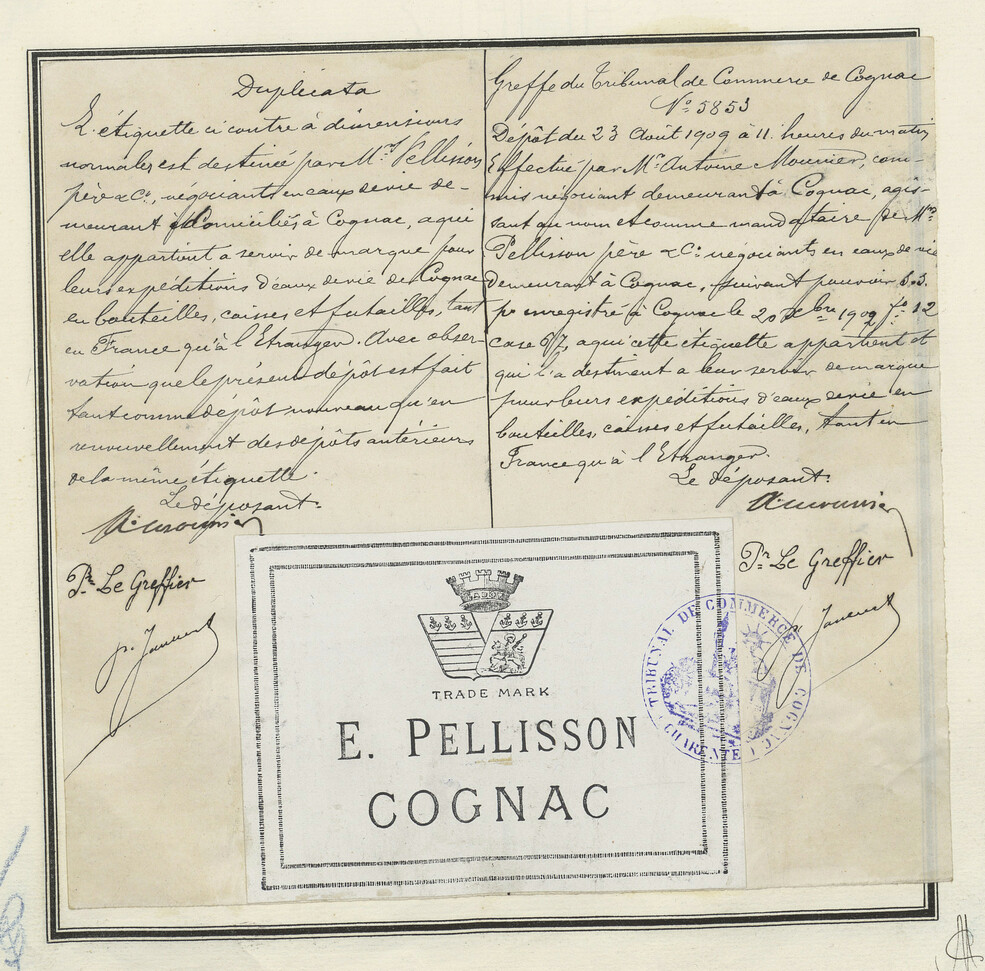 Duplicata
L'étiquette ci contre à dimensions
normales est destinée par Mrs Pellisson
père & Co, négociants en eaux de vie de-
meurant & domiciliés à Cognac, a qui
elle appartient a servir de marque pour
leurs expéditions d'eaux de vie de Cognac
en bouteilles, caisses et futailles, tant
en France qu'à l'Etranger. Avec obser-
vation que le présent dépôt est fait
tant comme dépôt nouveau qu'en
renouvellement des dépôts antérieurs
de la même étiquette
Le déposant.
A. Mounier
Pr. Le Greffier
Greffe du Tribunal de Commerce de Cognac
No. 5853
Dépôt du 23 Août 1909 à 11 heures du matin
Effectué par Mr. Antoine Mounier, com-
mis négociant demeurant à Cognac, agis-
sant au nom et comme mandataire de Mrs
Pellisson père & Co négociants en eaux de vie
demeurant à Cognac, suivant pouvoir s.s.
pr enregistré à Cognac le 20 1909 fo 12
case 67, a qui cette étiquette appartient et
qui l'a destinent a leur servir de marque
pour leurs expéditions d'eaux de vie en
bouteilles, caisses et futailles, tant en
France qu'à l'Etranger.
Le déposant.
A. Mounier
Pr. Le Greffier
TRADE MARK
E. PELLISSON
COGNAC
TRIBUNAL DE COMMERCE DE COGNAC
(CHARENTE)